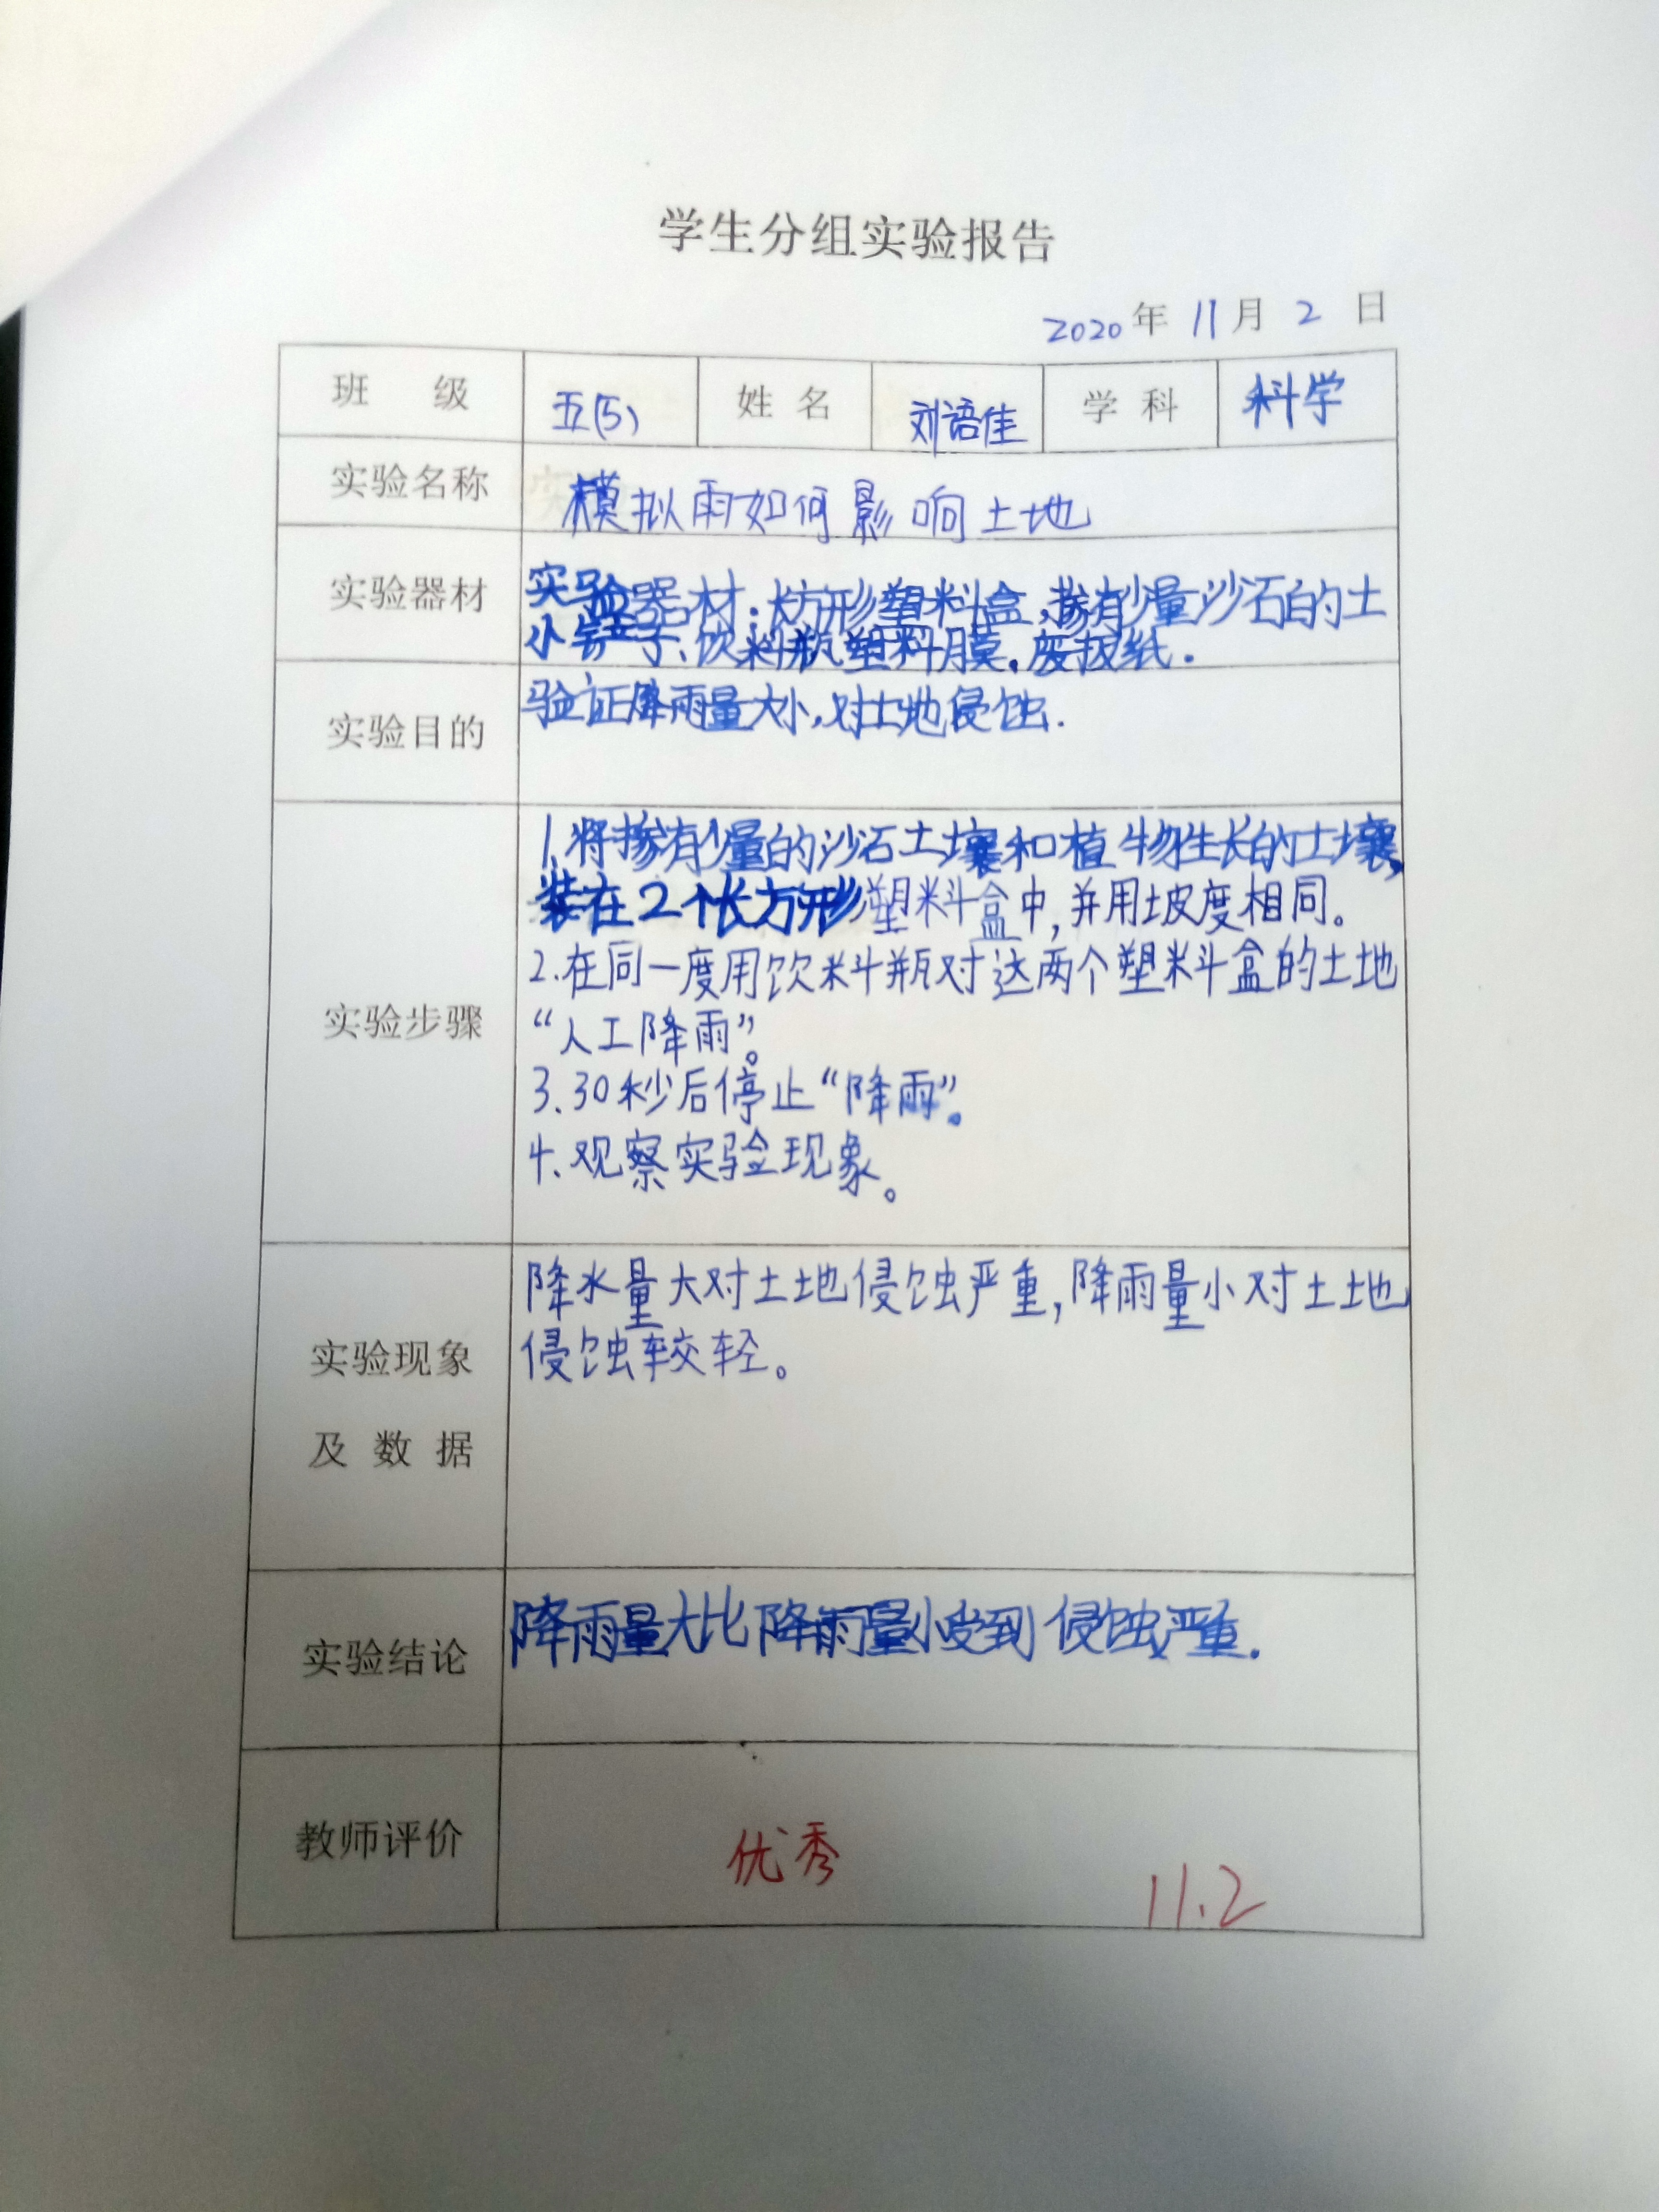 学生分组实验报告
2020年 11月 2 日
班 级 五(5) 姓 名 刘语佳 学 科 科学
实验名称 模拟雨如何影响土地
实验器材 实验器材:长方形塑料盒,掺有少量沙石的土
小铲子、饮料瓶塑料膜.废报纸.
实验目的 验证降雨量大小,对土地侵蚀.
实验步骤
1.将掺有少量的沙石土壤和植物生长的土壤,
装在2个长方形塑料盒中,并用坡度相同。
2.在同一度用饮料瓶对这两个塑料盒的土地
“人工降雨”。
3.30秒后停止“降雨”。
4.观察实验现象。
实验现象
及 数 据
降水量大对土地侵蚀严重,降雨量小对土地
侵蚀较轻。
实验结论 降雨量大比降雨量小受到侵蚀严重.
教师评价 优秀
11.2